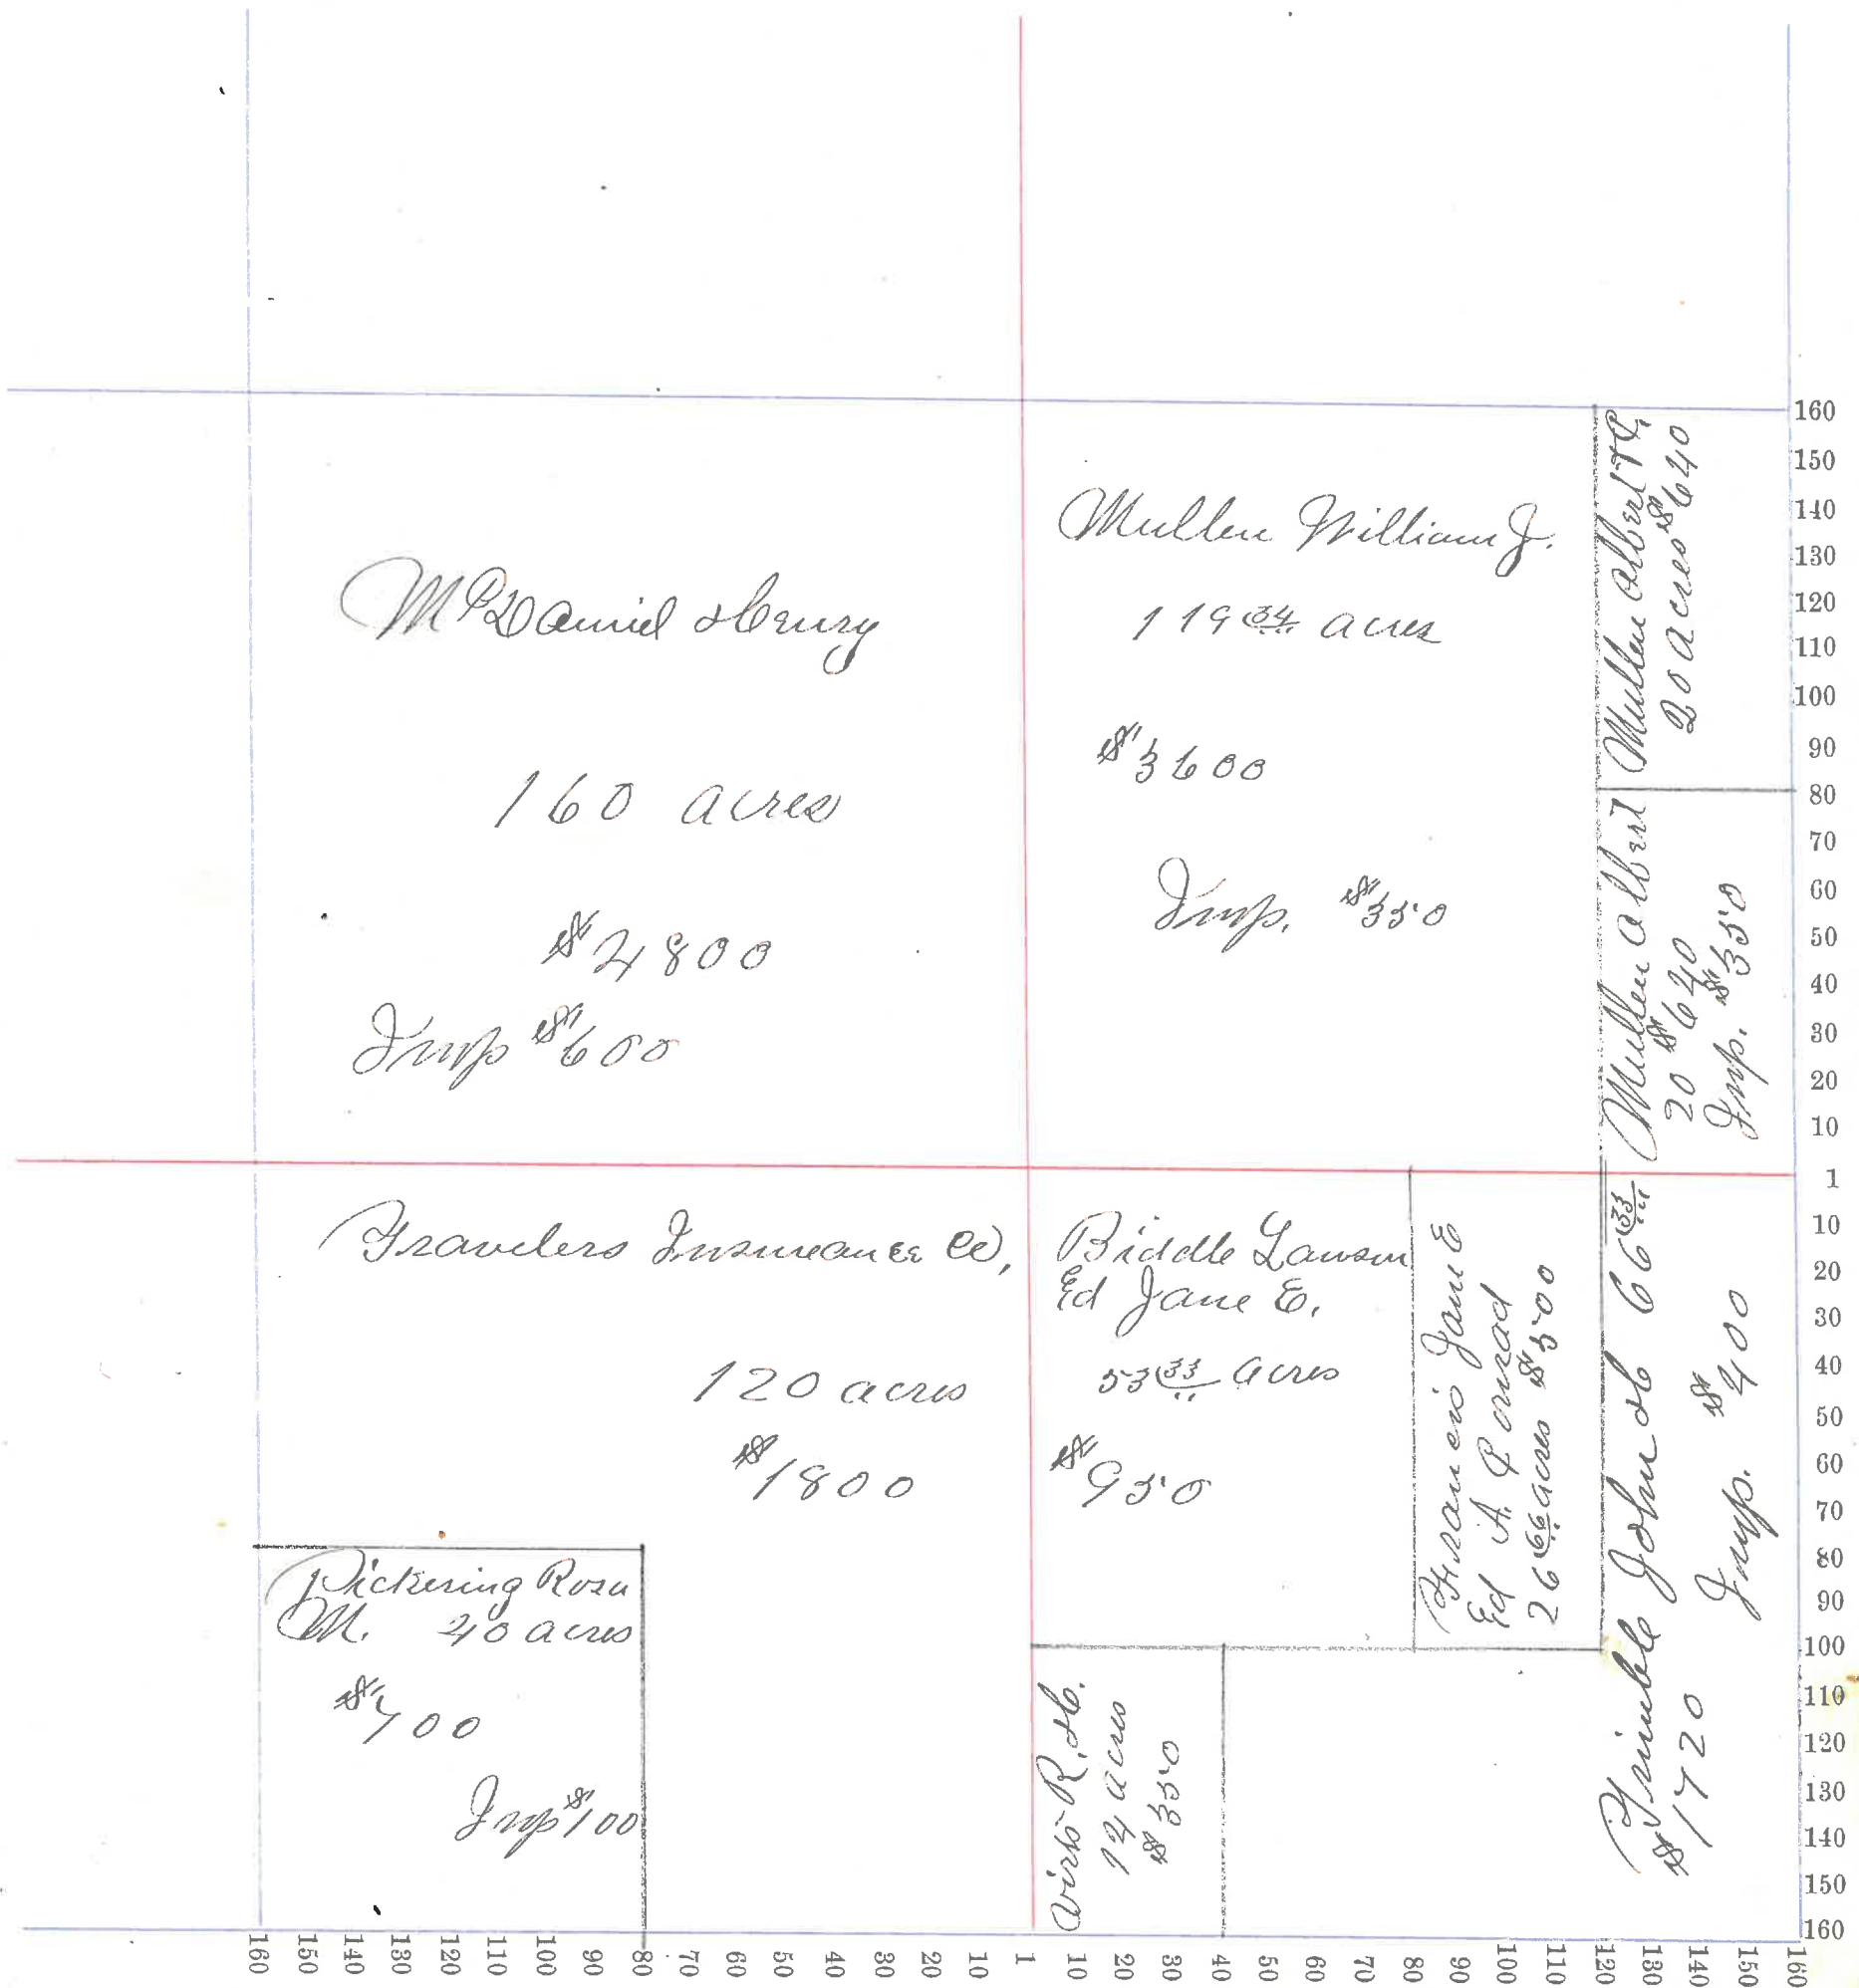 McDaniel Henry
160 acres
$4800
Imp $600
Mullen William J.
119 34 acres
$3600
Imp. $350
Mullen Albert
20 acres $640
Mullen Albert
20 $640
Imp. $350
Travelers Insurance Co,
120 acres
$1800
Pickering Rosa
M. 40 acres
$700
Imp $100
Biddle Lawson
Ed Jane E.
53 33 acres
$950
Francis Jane E
Ed A. Conrad
26 66 acres $500
R. H.
14 acres
$350
Trimble John H 66 33
$1720 Imp. $400
160
150
140
130
120
110
100
90
80
70
60
50
40
30
20
10
1
10
20
30
40
50
60
70
80
90
100
110
120
130
140
150
160
160 150 140 130 120 110 100 90 80 70 60 50 40 30 20 10 1 10 20 30 40 50 60 70 80 90 100 110 120 130 140 150 160